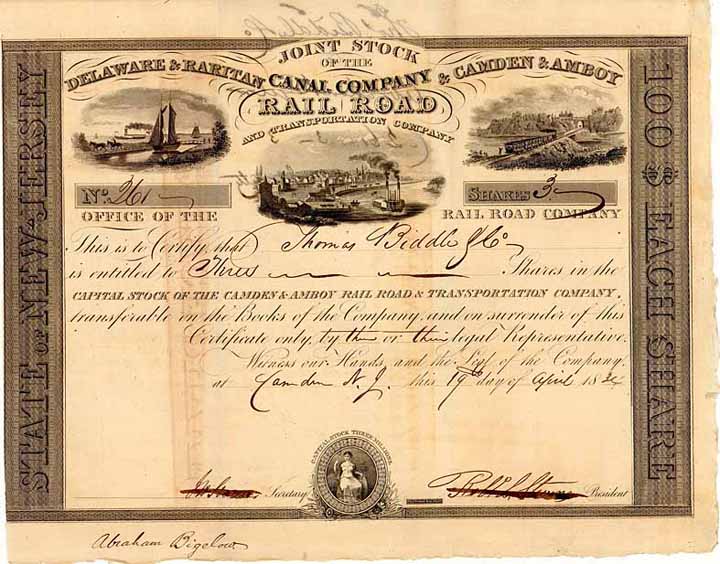 JOINT STOCK
OF THE
DELAWARE & RARITAN CANAL COMPANY & CAMDEN & AMBOY
RAIL ROAD
AND TRANSPORTATION COMPANY
STATE OF NEW-JERSEY
100 $ EACH SHARE
No. 261
SHARES 3
OFFICE OF THE RAIL ROAD COMPANY
This is to Certify, that Thomas Biddle & Co
is entitled to Three Shares in the
CAPITAL STOCK OF THE CAMDEN & AMBOY RAIL ROAD & TRANSPORTATION COMPANY,
transferable in the Books of the Company, and on surrender of this
Certificate only, by them or their legal Representative.
Witness our Hands, and the Seal of the Company,
at Camden N. J. this 19th day of April 1834
CAPITAL STOCK THREE MILLIONS
Secretary
President
Abraham Bigelow